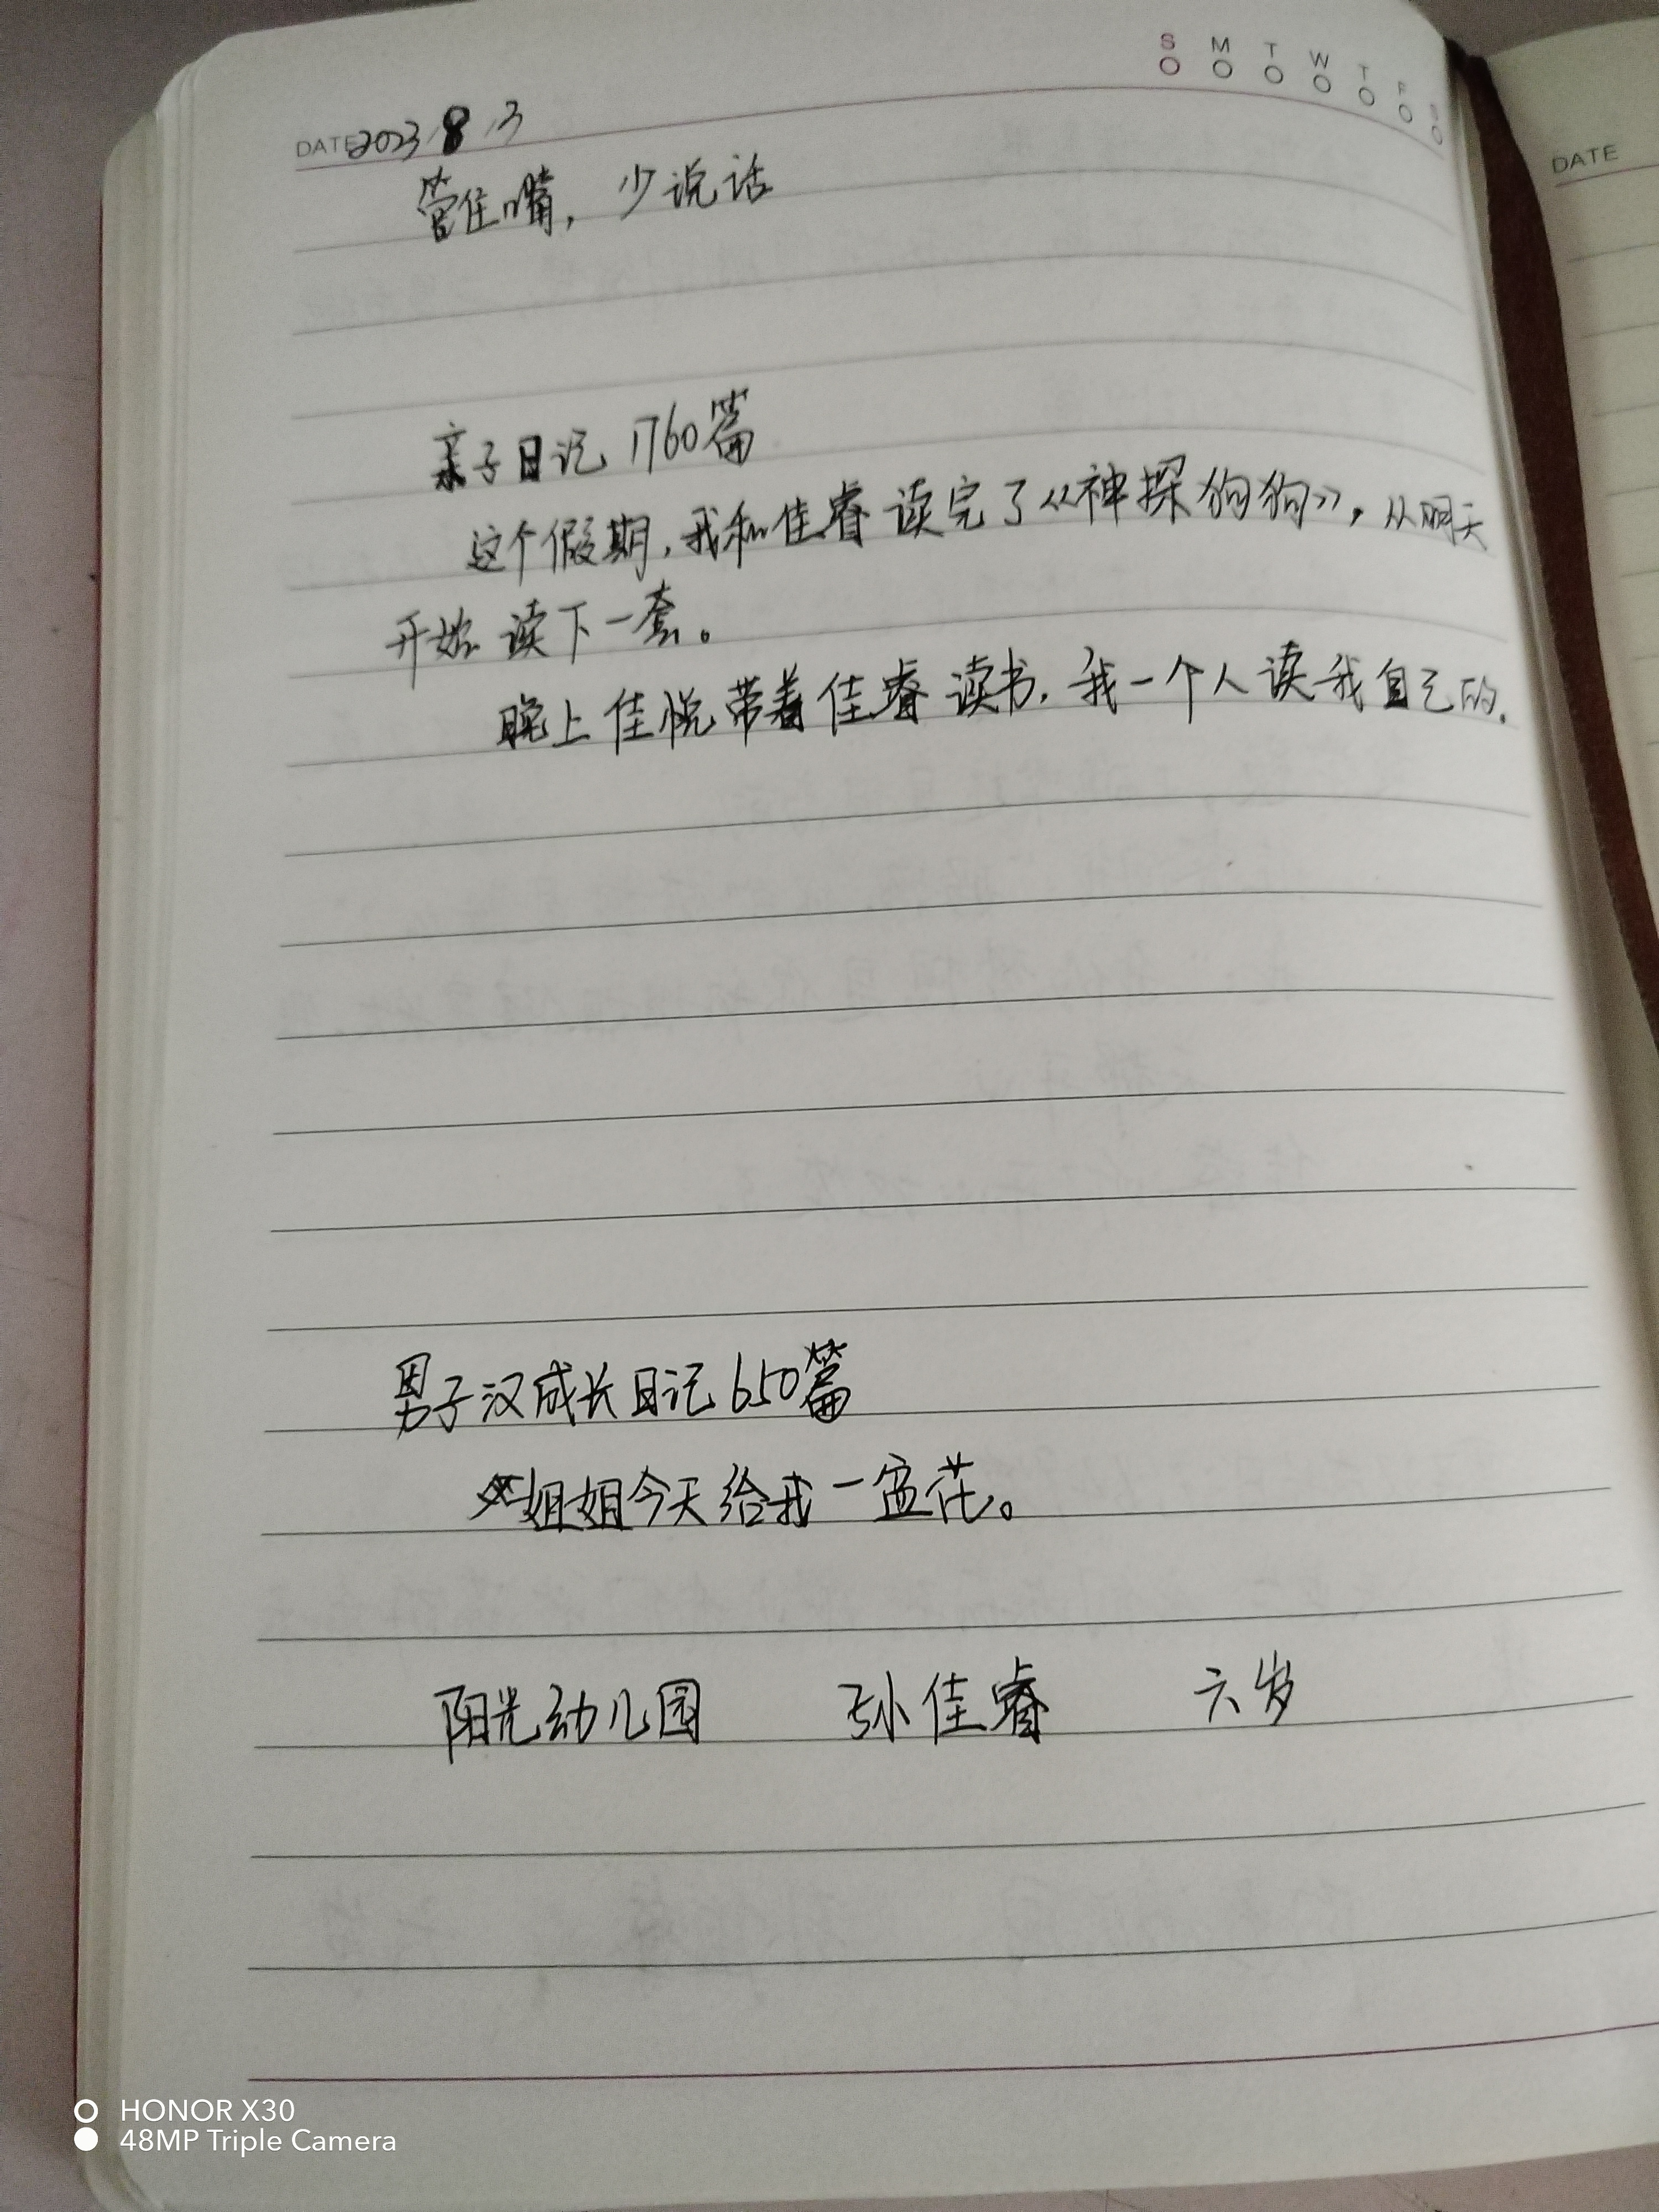 S M T W T F S
DATE 2023/8/3
DATE
管住嘴，少说话
亲子日记1760篇
这个假期，我和佳睿读完了《神探狗狗》，从明天
开始读下一套。
晚上佳悦带着佳睿读书，我一个人读我自己的.
男子汉成长日记650篇
姐姐今天给我一盆花。
阳光幼儿园 孙佳睿 六岁
HONOR X30
48MP Triple Camera